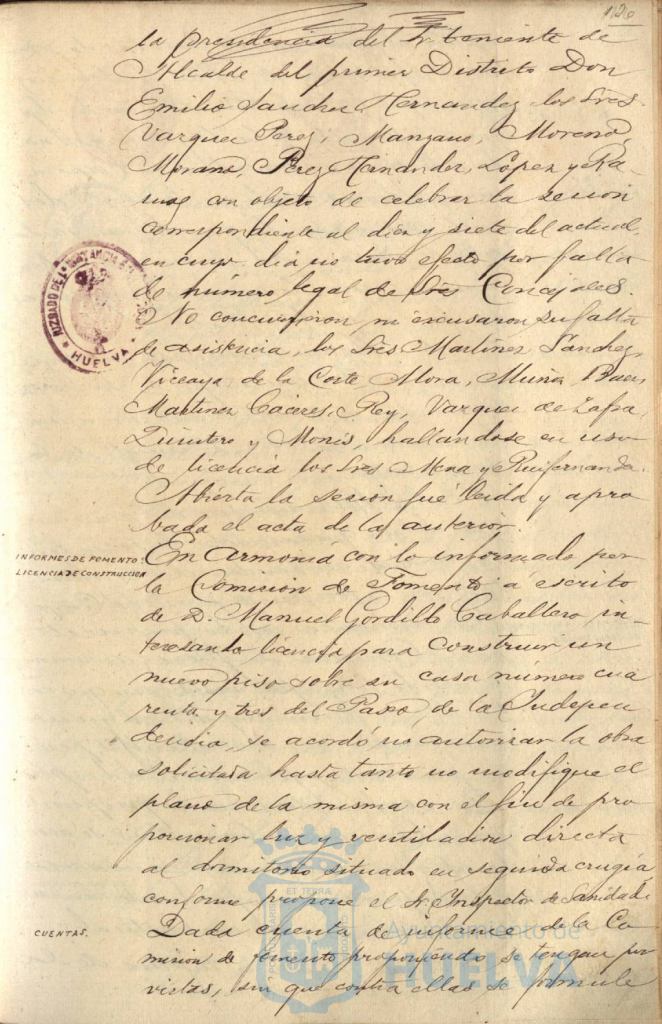 120
la presidencia del Sr. teniente de
Alcalde del primer Distrito Don
Emilio Sanchez Hernandez los Sres.
Vazquez Perez, Manzano, Moreno,
Morano, Pérez Hernandez, Lopez y Ra-
mos con objeto de celebrar la sesion
correspondiente al diez y siete del actual
en cuyo dia no tuvo efecto por falta
de número legal de Sres Concejales.
No concurrieron ni escusaron su falta
de asistencia, los Sres Martinez Sanchez,
Vizcaya de la Corte Mora, Muñoz, Baez
Martinez Cáceres, Rey, Vazquez de Zafra,
Quintero y Monis, hallandose en uso
de licencia los Sres Mena y Ruifernandez.
Abierta la sesion fué leida y apro
bada el acta de la anterior.
INFORMES DE FOMENTO:
LICENCIA DE CONSTRUCCION
En armonia con lo informado por
la Comision de Fomento á escrito
de D. Manuel Gordillo Caballero in-
teresando licencia para construir un
nuevo piso sobre su casa número cua
renta y tres del Paseo de la Indepen
dencia, se acordó no autorizar la obra
solicitada hasta tanto no modifique el
plano de la misma con el fin de pro
porcionar luz y ventilacion directa
al dormitorio situado en segunda crugia,
conforme propone el Sr. Inspector de Sanidad.
CUENTAS.
Dada cuenta de informe de la Co
mision de fomento proponiendo se tengan por
vistas, sin que contra ellas se formule
JUZGADO DE 1ª INSTANCIA
HUELVA
Ayuntamiento de
HUELVA